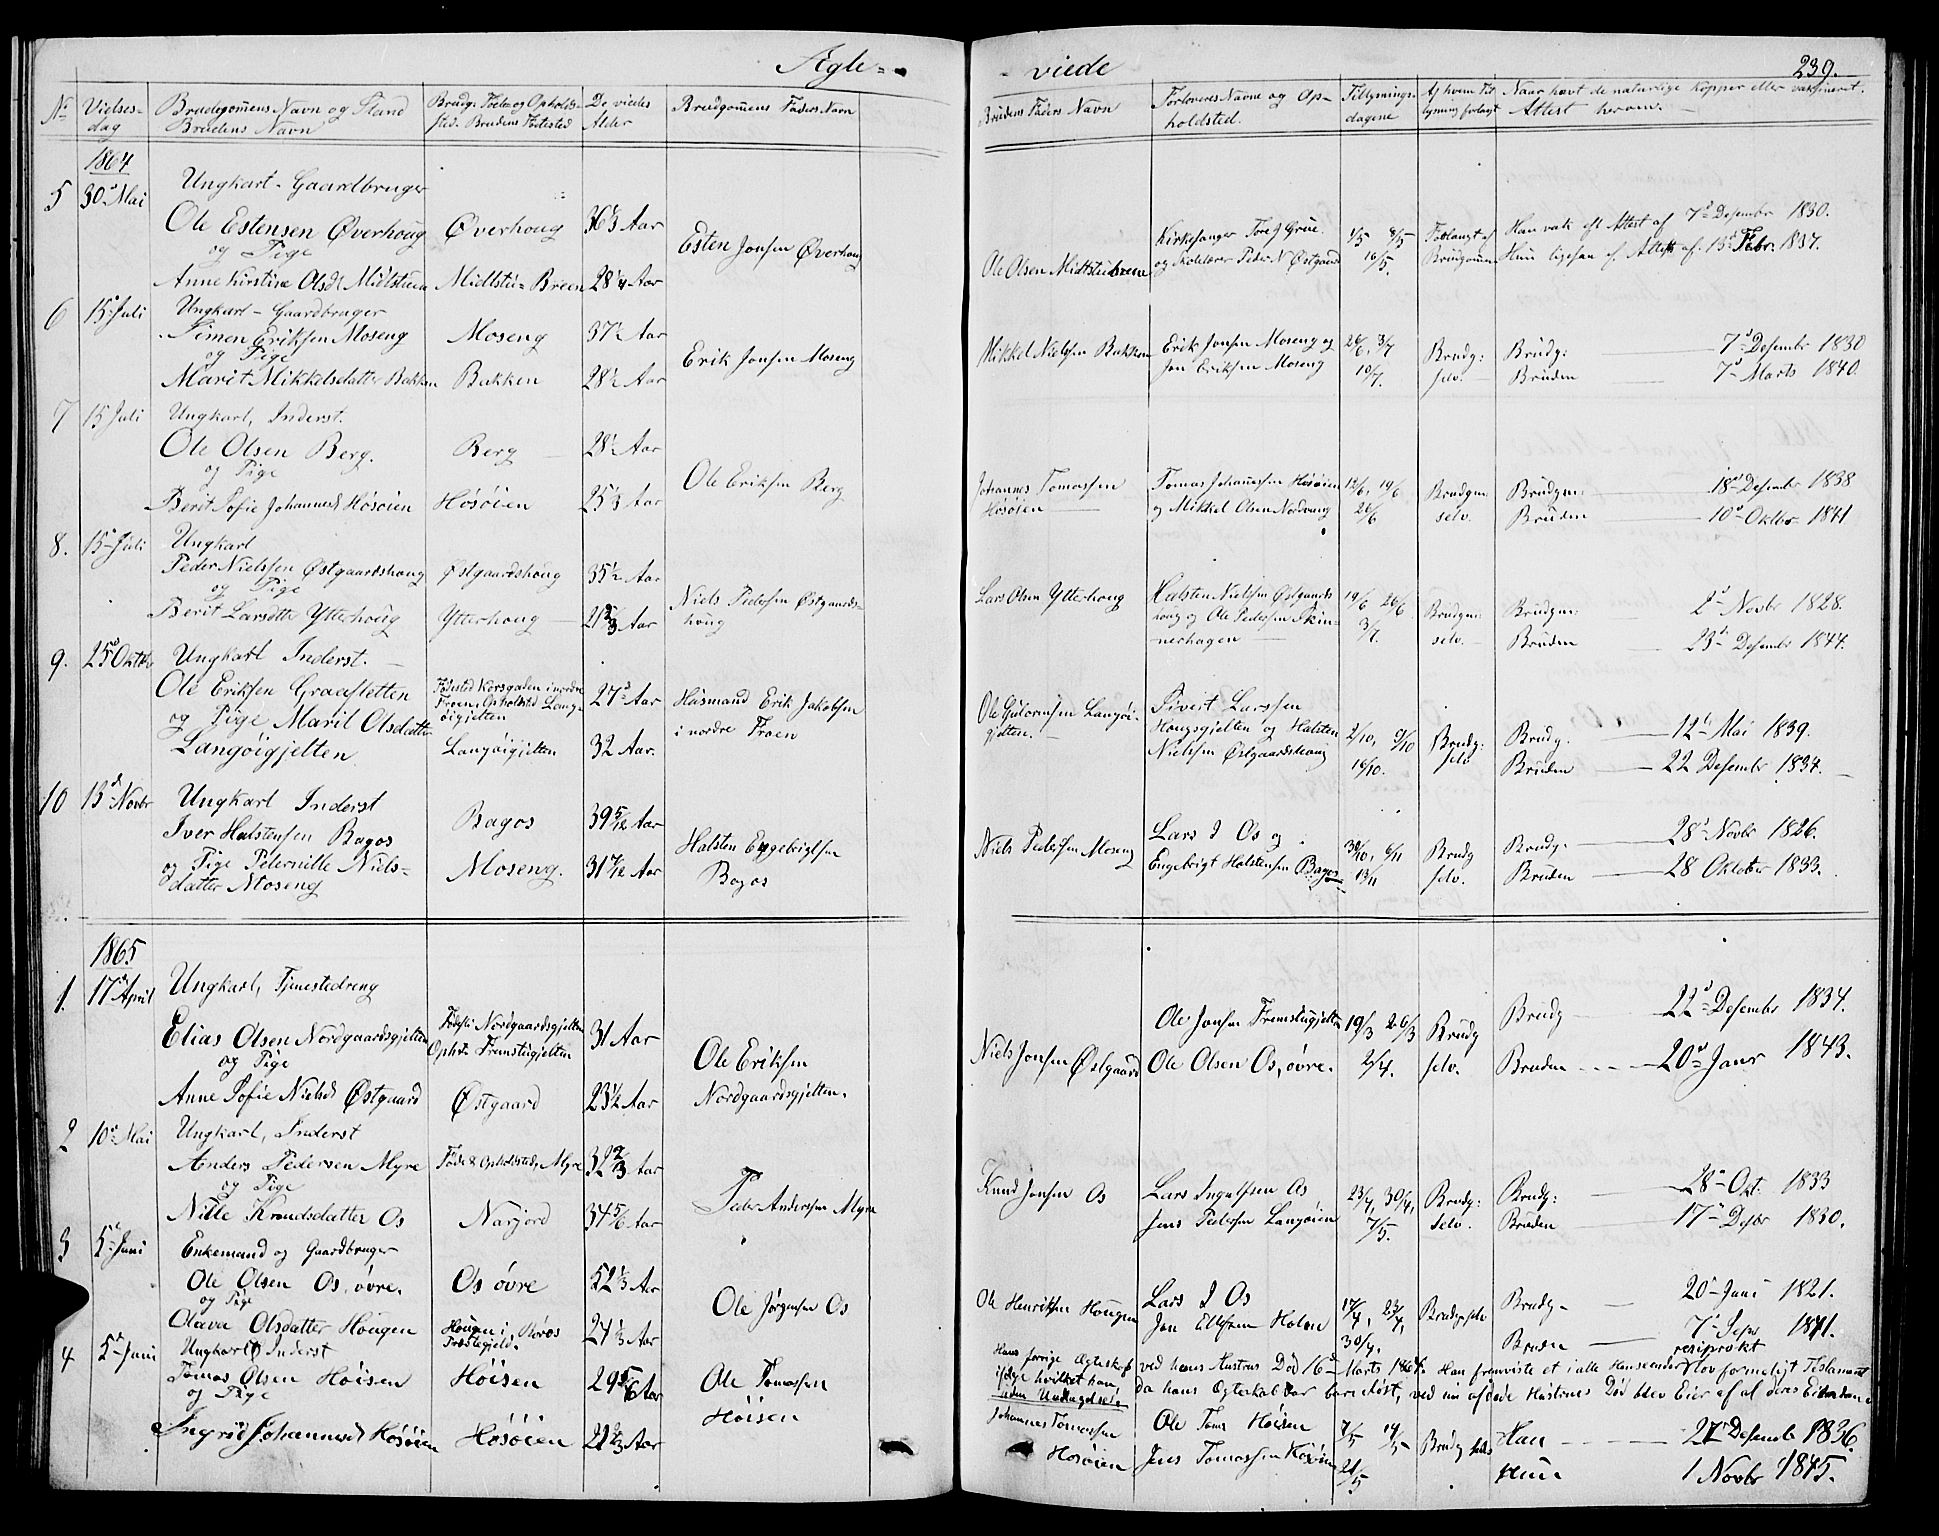 Ægte-
- viede
239.
No
Vielses-
dag
Brudegommens Navn og Stand
Brudens Navn
Brudg. Føde- og Opholds-
sted. Brudens Fødested
De viedes
Alder
Brudgommens Faders Navn
Brudens Faders Navn
Forloveres Navne og Op-
holdsted.
Tillysnings-
dagene
Af hvem Til-
lysning forlangt
Naar havt de naturlige Kopper eller vaksineret.
Attest herom.
1864
5 30 Mai Ungkarl - Gaardbruger
Ole Estensen Øverhoug Øverhoug 36 1/3 Aar
og Pige
Anne Kirstine Olsd. Midtstuen Midtstu-Breen 28 1/4 Aar
Esten Jonsen Øverhoug
Ole Olsen Midtstubreen
Kirkesanger Tore J Grue
og Skolelærer Peder N Østgaard
1/5 8/5
16/5.
Forlangt af
Brudgommen
Han vak. eft Attest af 7d Desember 1830.
Hun ligesaa ef. Attest af 15d Febr. 1837.
6 15 Juli Ungkarl - Gaardbruger
Simen Eriksen Moseng Moseng 37 1/2 Aar
og Pige
Marit Mikkelsdatter Bakken Bakken 28 1/2 Aar
Erik Jonsen Moseng
Mikkel Nielsen Bakken
Erik Jonsen Moseng og
Jon Eriksen Moseng
26/6, 3/7
10/7.
Brudg:
selv.
Brudg: 7d Desember 1830
Bruden 7d Marts 1840.
7 15 Juli Ungkarl, Inderst.
Ole Olsen Berg. Berg 28 1/2 Aar
og Pige
Berit Sofie Johannesd Høsøien Høsøien 25 1/3 Aar
Ole Eriksen Berg
Johannes Tomassen
Høsøien
Tomas Johannessen Høsøien
og Mikkel Olsen Nordvang
12/6, 19/6
26/6
Brudgm:
selv.
Brudgm: 18d Desember 1838
Bruden 10d Oktbr 1841
8. 15 Juli Ungkarl
Peder Nielsen Østgaardshoug Østgaardshoug 35 1/2 Aar
og Pige
Berit Larsdtr Ytterhoug Ytterhoug 21 2/3 Aar
Niels Pedersen Østgaards-
houg
Lars Olsen Ytterhoug
Halsten Nielsen Østgaards
houg og Ole Pedersen Skin-
nerhagen
19/6 26/6
3/7.
Brudgm:
selv.
Brudgm: 2d Novbr 1828.
Bruden 23d Desember 1844.
9. 25d Oktbr Ungkarl Inderst.
Ole Eriksen Graasletten
og Pige Marit Olsdatter
Langøigjelten
Fødested Korsgaden i nordre
Froen, Opholdsted Lang-
øigjelten
Langøigjelten
27d Aar
32 Aar.
Husmand Erik Jakobsen
i nordre Froen
Ole Gulormsen Langøi-
gjelten.
Sivert Larssen
Hougsgjelten og Halsten
Nielsen Østgaardshoug
2/10, 9/10
16/10.
Brudg:
selv
Brudg. 12d Mai 1839.
Bruden 22 Desember 1834.
10 13d Novbr Ungkarl Inderst
Iver Halstensen Bagos
og Pige Peternille Niels-
datter Moseng
Bagos 39 5/12 Aar
Moseng. 31 7/12 Aar
Halsten Engebrigtsen
Bagos
Niels Pedersen Moseng
Lars I Os og
Engebrigt Halstensen Bagos
30/10, 6/11
13/11
Brudg
selv.
Brudg. 28d Novbr 1826.
Bruden 28 Oktober 1833.
1865
1. 17d April Ungkarl, Tjenestedreng
Elias Olsen Nordgaardsgjelten
og Pige
Anne Sofie Nielsd Østgaard
Fødest: Nordgaardsgjelten
Ophst. Fremstugjelten
Østgaard
31 Aar
23 1/2 Aar
Ole Eriksen
Nordgaardsgjelten.
Niels Jonsen Østgaard
Ole Jonsen Fremstugjelten
Ole Olsen Os, øvre.
19/3 26/3
2/4.
Brudg
selv.
Brudg 22d Desember 1834.
Bruden 20d Janr 1843.
2 10d Mai Ungkarl, Inderst
Anders Pedersen Myre
og Pige
Nille Knudsdatter Os
Føde & Opholdsted, Myre
Narjord
32 2/3 Aar
34 5/6 Aar
Peder Andersen Myre
Knud Jonsen Os
Lars Ingulfsen Os
Jens Pedersen Langøien
23/4, 30/4,
7/5.
Brudg:
selv.
Brudg: 28d Okt. 1833
Bruden 17d Desbr 1830.
3 5d Juni Enkemand og Gaardbruger
Ole Olsen Os, øvre.
og Pige
Olava Olsdatter Hougen
Os øvre
Hougen i Røros
Præstegjeld.
52 1/3 Aar
24 1/3 Aar
Ole Jørgensen Os
Ole Henriksen Hougen
Lars I Os
Jon Ellefsen Holm
17/4, 23/4,
30/4.
Brudg selv
Brudg- 20d Juni 1821.
Bruden 7d Sepr 1841.
Hans forrige Ægteskab ved hans Hustrus Død 16d Marts 1864. Han fremviste et i alle Henseender lovformeligt resiprokt Testament
ifølge hvilket han da hans Ægteskab var barnløst, ved sin afdøde Hustrues Død blev Eier af al deres Eiendom
uden Undtagelse.
4 5d Juni Ungkarl Inderst
Tomas Olsen Høisen Høisen 29 5/6 Aar
og Pige
Ingrid Johannesd Høsøien Høsøien 21 2/3 Aar
Ole Tomassen
Høisen
Johannes Tomassen
Høsøien
Ole Toms Høisen
Jens Tomassen Høsøien
7/5 14/5
21/5
Brudg selv
Han 27d Desemb 1836.
Hun 1 Novbr 1845.